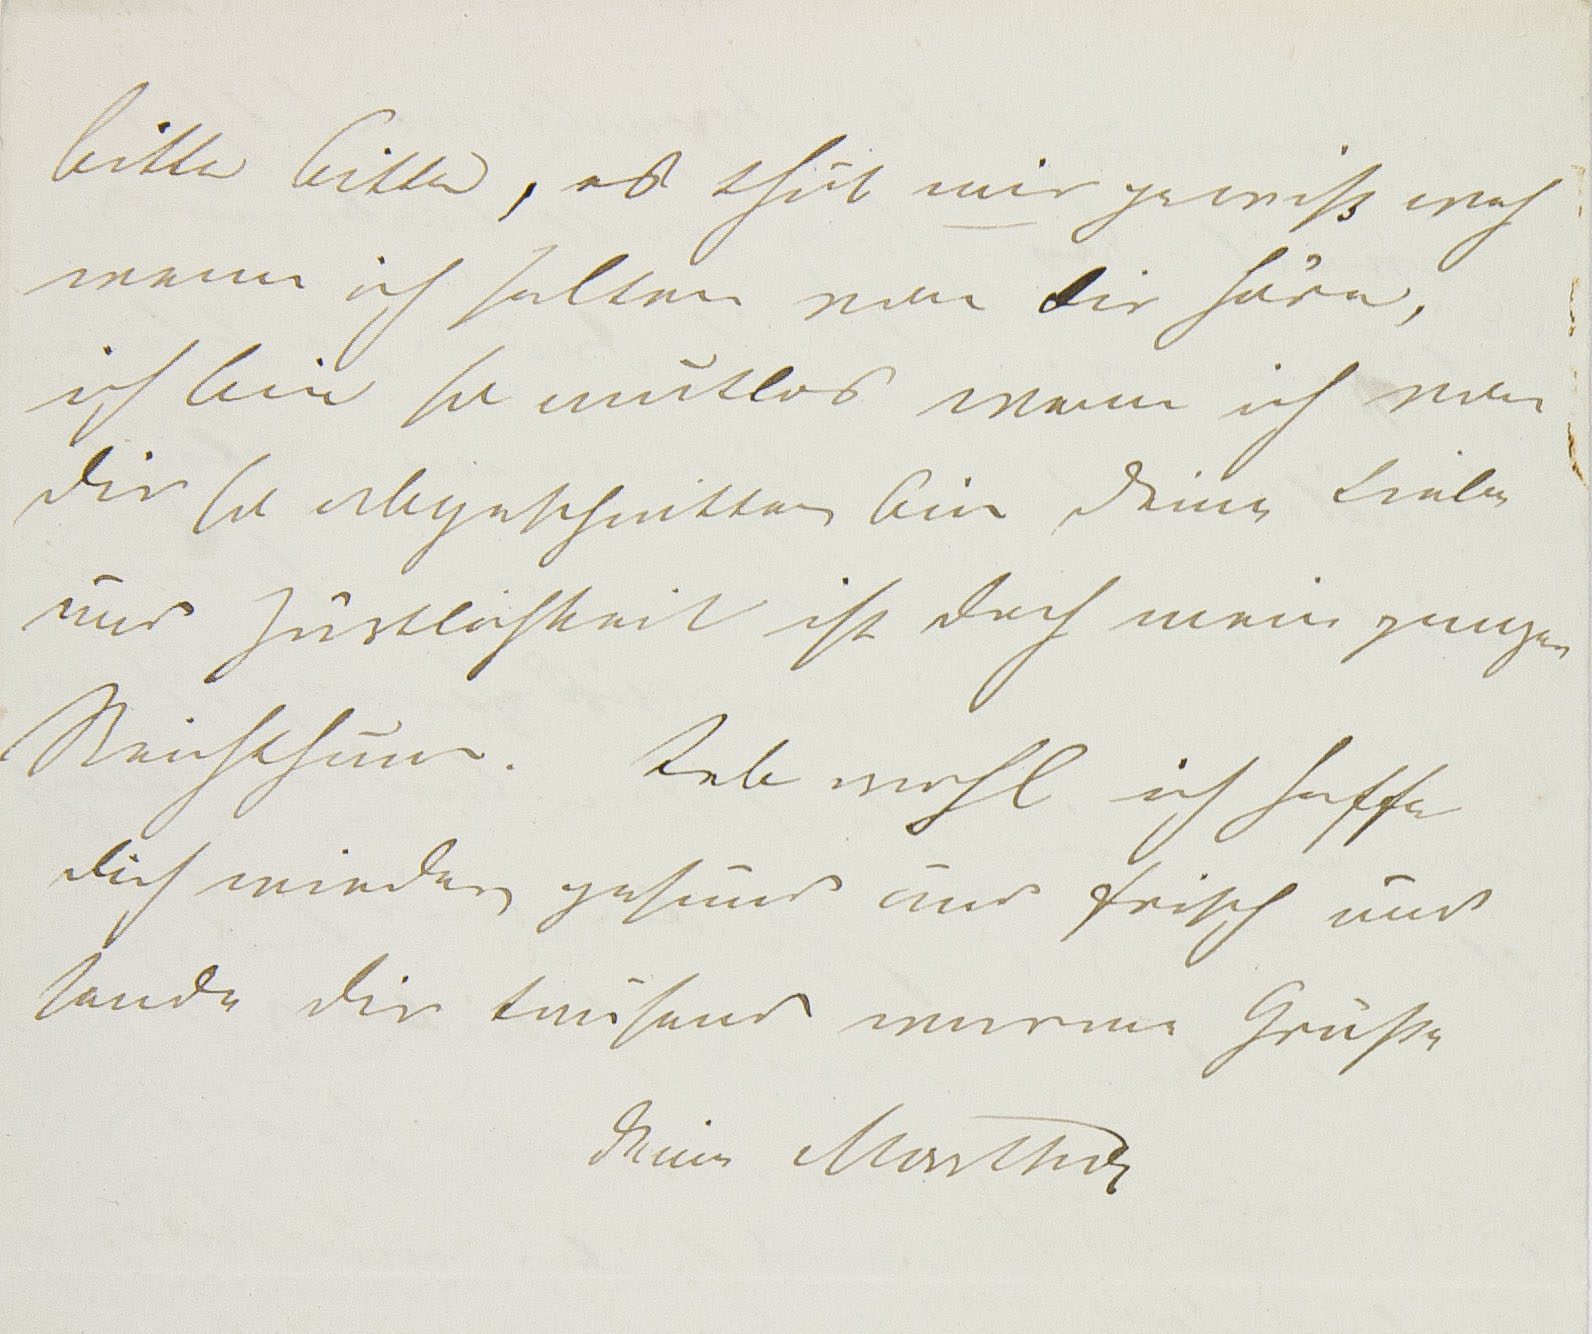 bitte bitte, es thut mir gewiß weh
wenn ich selten von dir höre,
ich bin so mutlos wenn ich von
dir so abgeschnitten bin deine Liebe
und Zärtlichkeit ist doch mein ganzer
Reichthum. Leb wohl ich hoffe
dich wieder gesund und frisch und
sende dir tausend warme Grüße
deine Martha